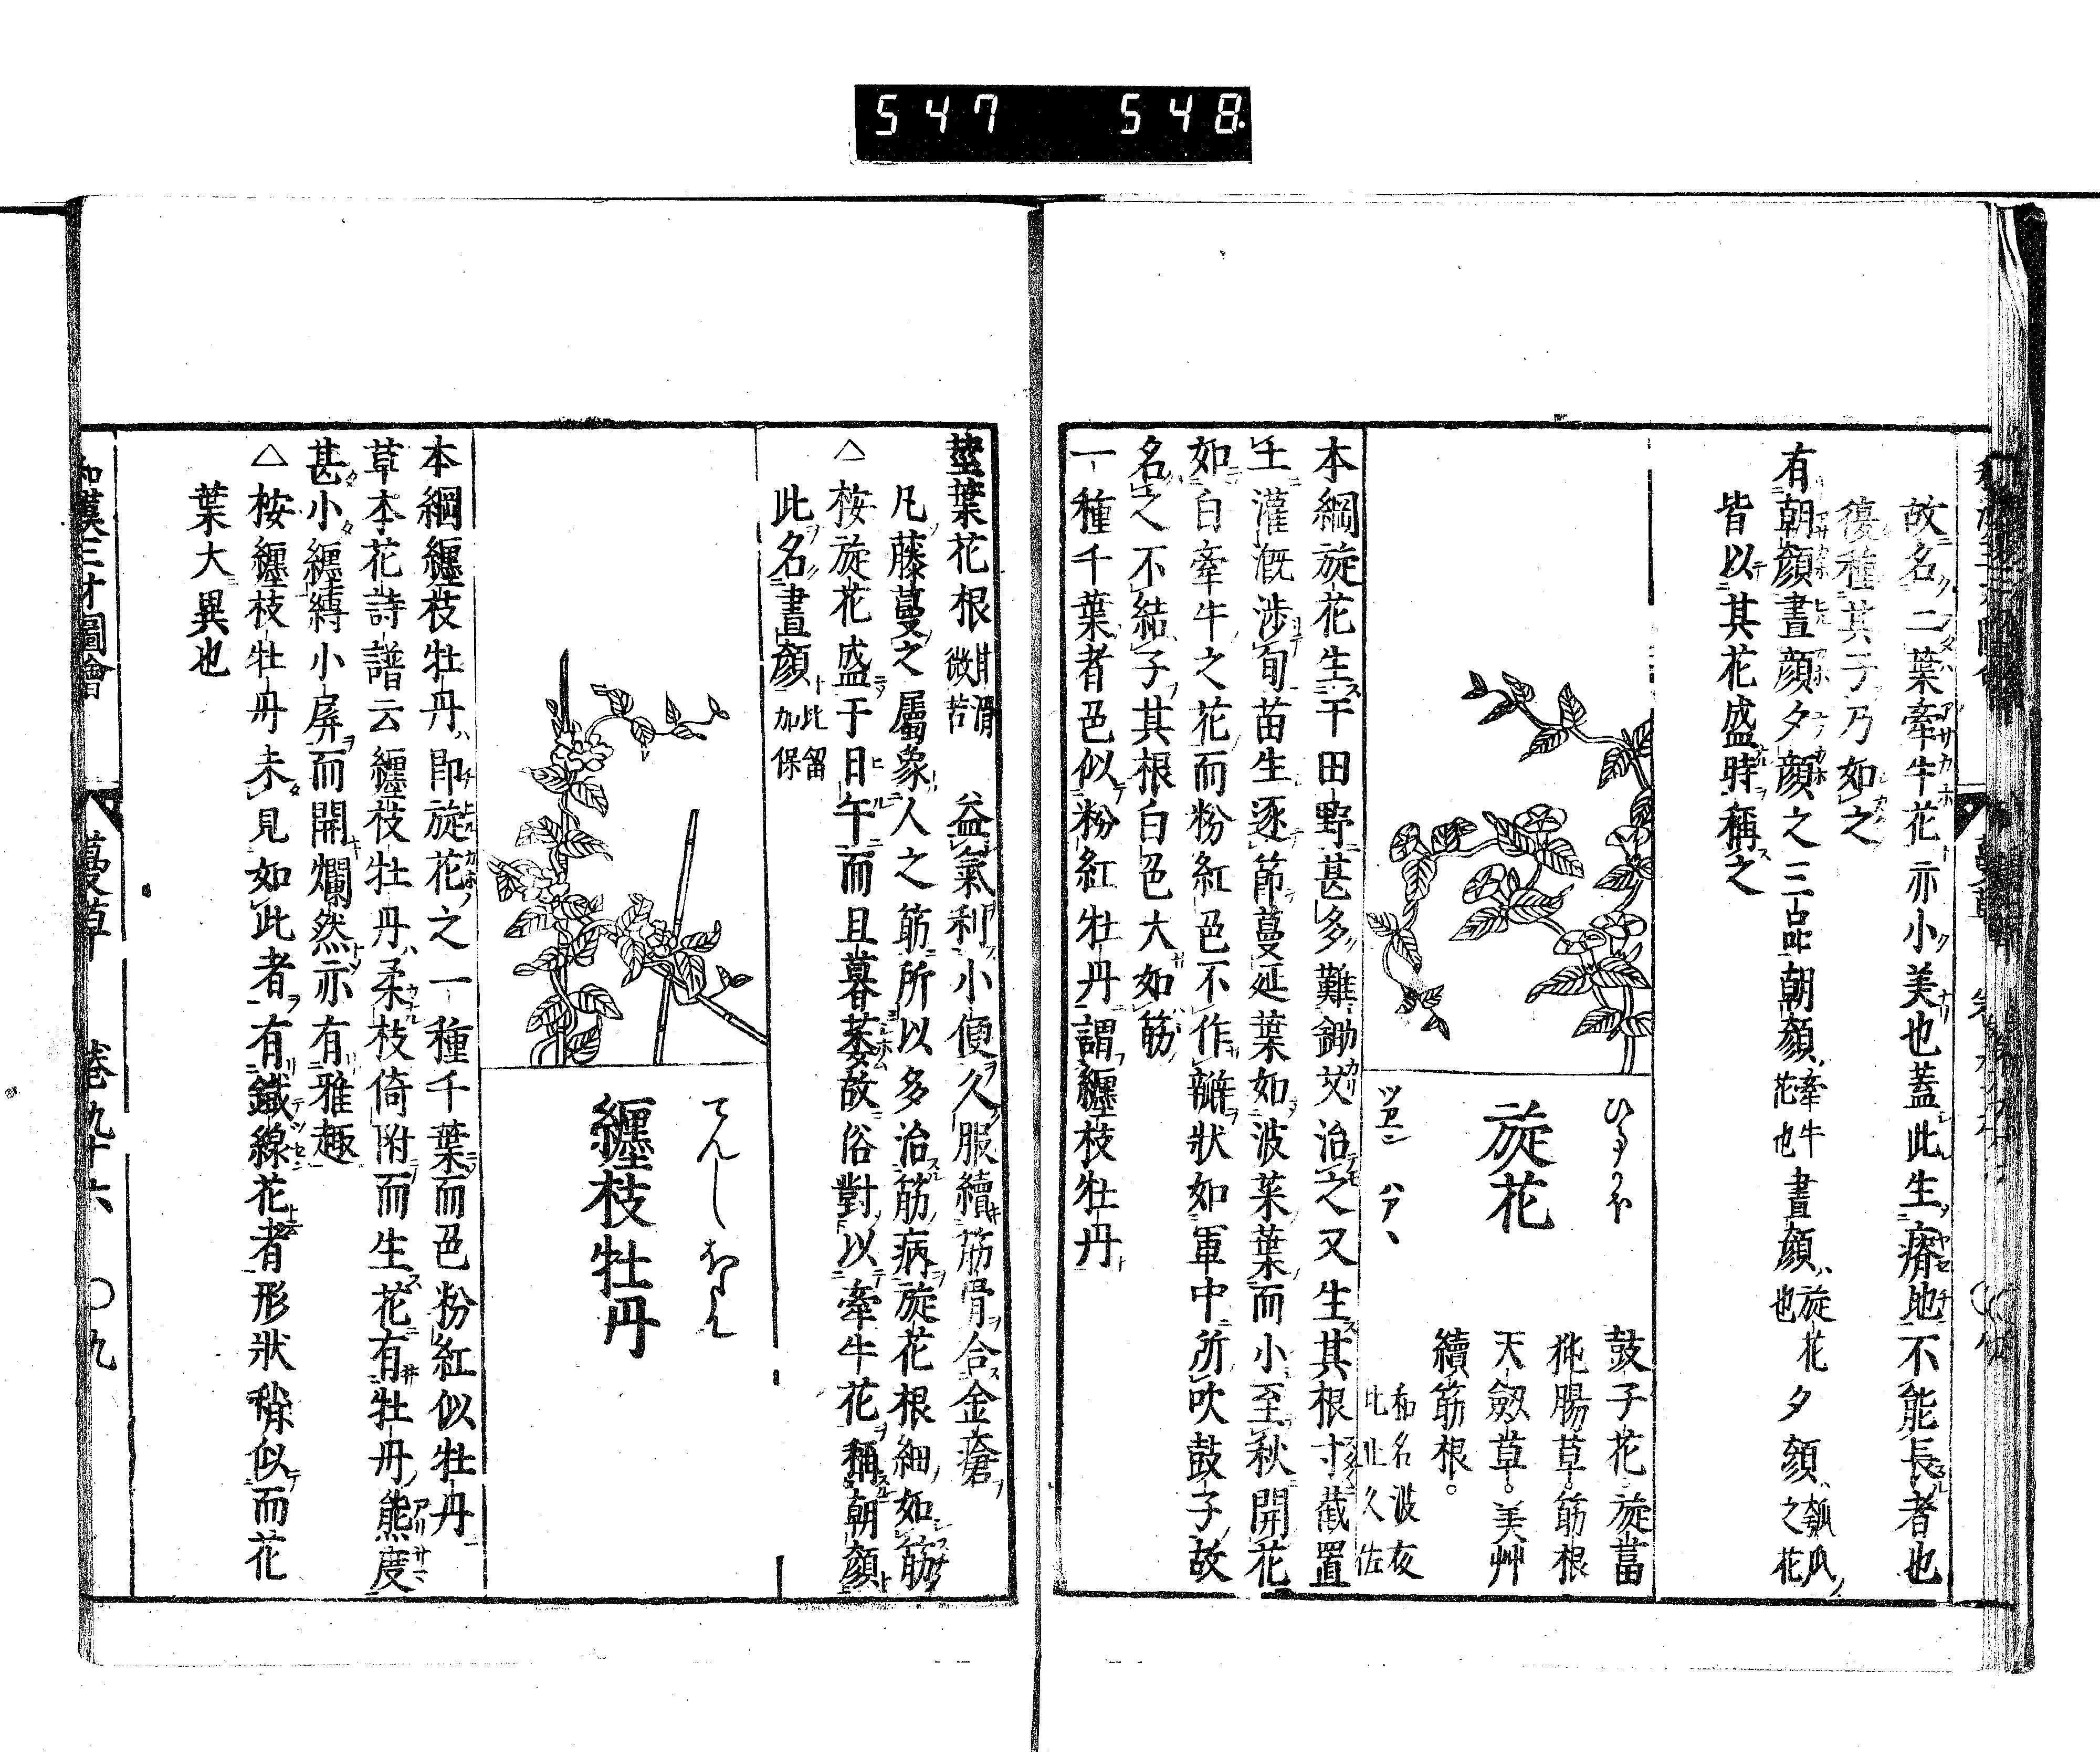 547 548
故名二葉牽牛花亦小美也蓋此生瘠地不能長者也
復種其子乃如之
有朝顔晝顔夕顔之三品朝顔牽牛花也晝顔旋花也夕顔瓠瓜之花
皆以其花盛時稱之
ひるかほ
旋花
ツヱン ハアヽ
鼓子花 旋葍
㹠腸草 筋根
天劔草 美艸
續筋根
和名波夜
比止久佐
本綱旋花生干田野甚多難鋤艾治之又生其根寸截置
土灌漑渉旬苗生逐節蔓延葉如波菜葉而小至秋開花
如白牽牛之花而粉紅色不作瓣狀如軍中所吹鼓子故
名之不結子其根白色大如筋
一種千葉者色似粉紅牡丹謂纏枝牡丹
莖葉花根甘滑微苦 益氣利小便久服續筋骨合金瘡
凡藤蔓之屬象人之筋所以多治筋病旋花根細如筋
△桉旋花盛于日午而且暮萎故俗對以牽牛花稱朝顔
此名晝顔比留加保
てんしほたん
纏枝牡丹
本綱纏枝牡丹即旋花之一種千葉而色粉紅似牡丹
草本花詩譜云纏枝牡丹柔枝倚附而生花有牡丹態度
甚小纏縛小屏而開爛然亦有雅趣
△桉纏枝牡丹未見如此者有鐵線花者形狀稍似而花
葉大異也
和漢三才圖會 蔓草 巻九十六 〇九